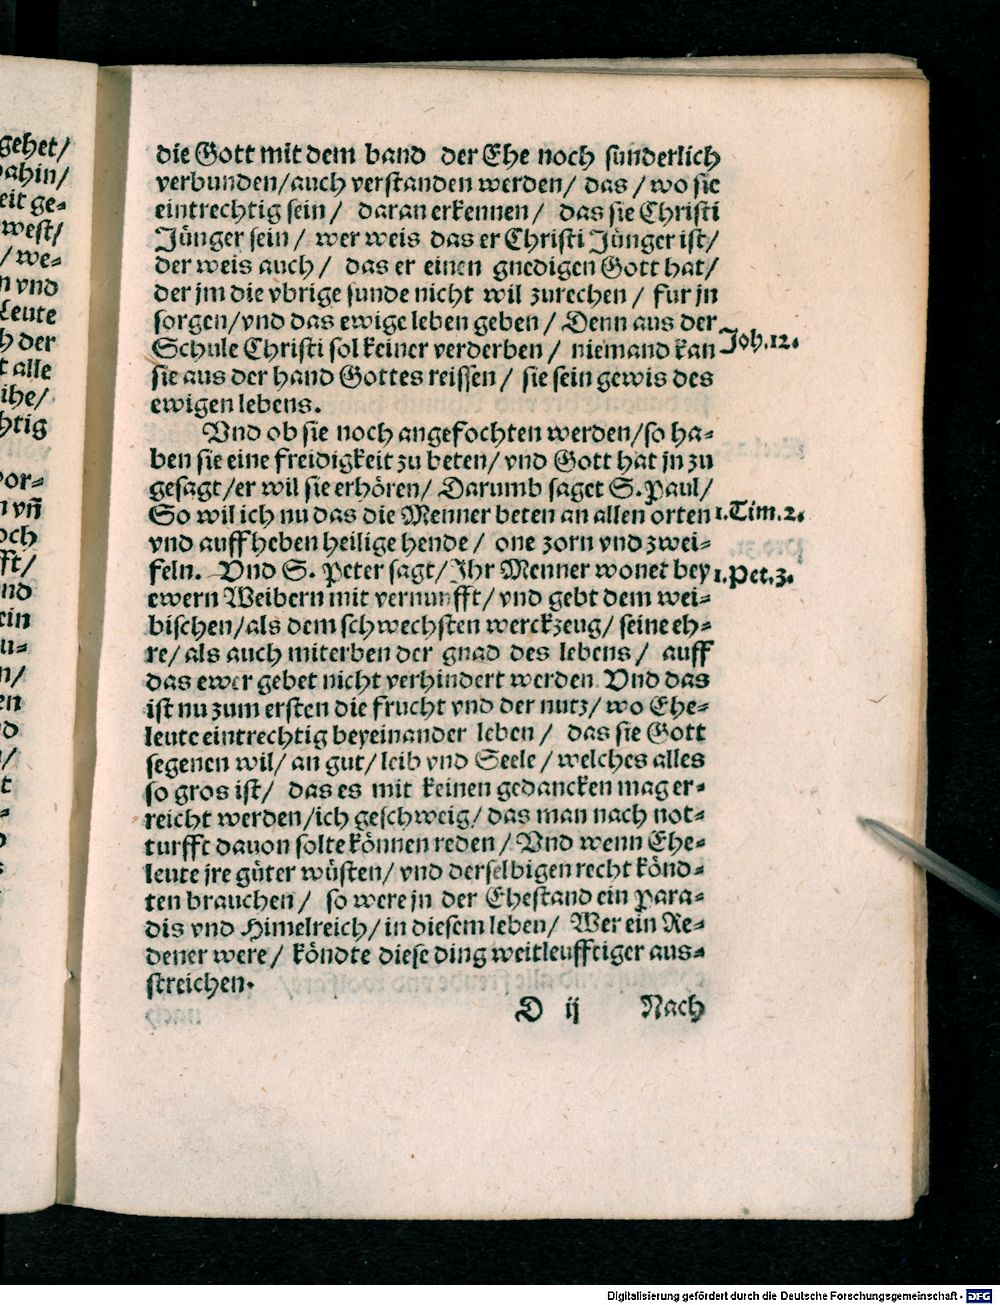 gehet/
dahin/
eit ge-
west/
/ we-
n vnd
Leute
h der
t alle
ihe/
htig
vor-
n vñ
och
fft/
nd
ein
u-
n/
en
d
/
t
die Gott mit dem band der Ehe noch sunderlich
verbunden/auch verstanden werden/ das / wo sie
eintrechtig sein / daran erkennen / das sie Christi
Jünger sein / wer weis das er Christi Jünger ist/
der weis auch / das er einen gnedigen Gott hat/
der jm die vbrige sunde nicht wil zurechen / fur jn
sorgen/vnd das ewige leben geben / Denn aus der
Joh.12.
Schule Christi sol keiner verderben / niemand kan
sie aus der hand Gottes reissen / sie sein gewis des
ewigen lebens.
Vnd ob sie noch angefochten werden/so ha-
ben sie eine freidigkeit zu beten/ vnd Gott hat jn zu
gesagt/er wil sie erhören/ Darumb saget S. Paul/
So wil ich nu das die Menner beten an allen orten
1.Tim.2.
vnd auffheben heilige hende / one zorn vnd zwei-
feln. Vnd S. Peter sagt/ Ihr Menner wonet bey
1.Pet.3.
ewern Weibern mit vernunfft/ vnd gebt dem wei-
bischen/als dem schwechsten werckzeug/ seine eh-
re/ als auch miterben der gnad des lebens / auff
das ewer gebet nicht verhindert werden Vnd das
ist nu zum ersten die frucht vnd der nutz/ wo Ehe-
leute eintrechtig beyeinander leben / das sie Gott
segenen wil/ an gut/ leib vnd Seele / welches alles
so gros ist/ das es mit keinen gedancken mag er-
reicht werden/ich geschweig/ das man nach not-
turfft dauon solte können reden / Vnd wenn Ehe-
leute jre güter wüsten/ vnd derselbigen recht könd-
ten brauchen / so were jn der Ehestand ein Para-
dis vnd Himelreich/ in diesem leben/ Wer ein Re-
dener were / köndte diese ding weitleufftiger aus-
streichen.
D ij Nach
Digitalisierung gefördert durch die Deutsche Forschungsgemeinschaft - DFG